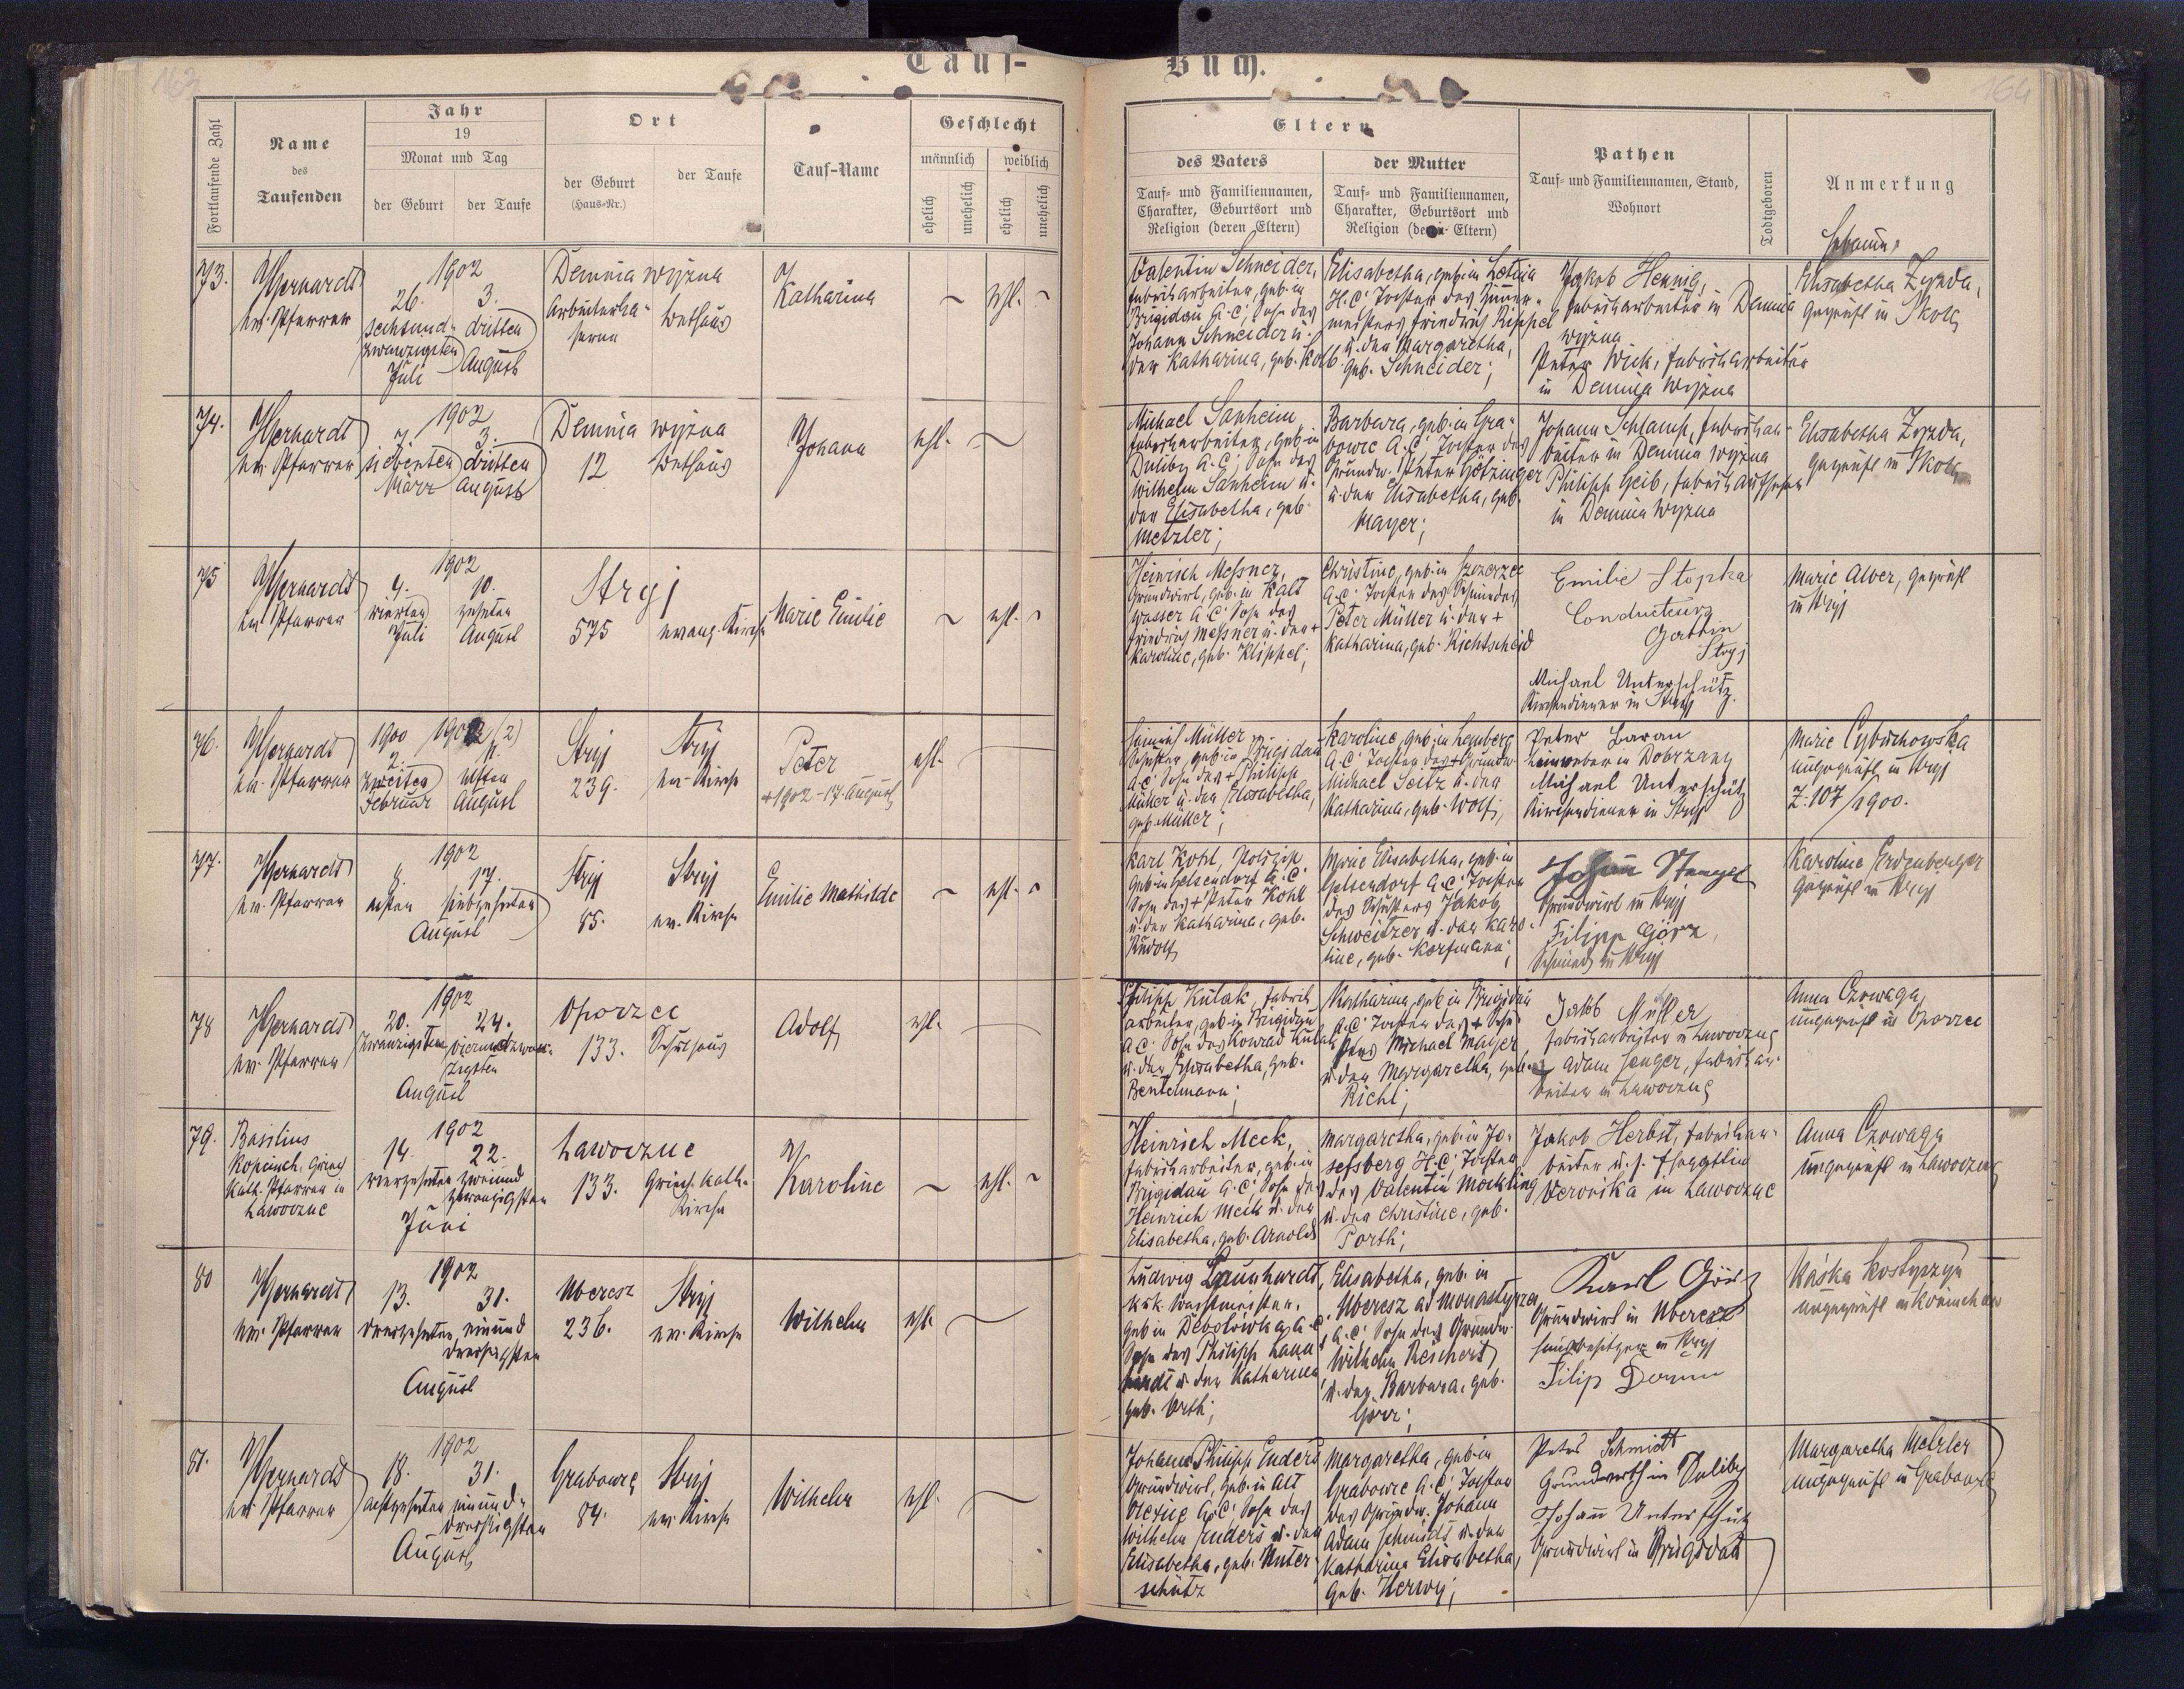 163
164
Tauf-Buch.
Fortlaufende Zahl
Name
des
Taufenden
Jahr
19
Monat und Tag
der Geburt
der Taufe
Ort
der Geburt
(Haus-Nr.)
der Taufe
Tauf-Name
Geschlecht
männlich
weiblich
ehelich
unehelich
ehelich
unehelich
Eltern
des Vaters
Tauf- und Familiennamen,
Charakter, Geburtsort und
Religion (deren Eltern)
der Mutter
Tauf- und Familiennamen,
Charakter, Geburtsort und
Religion (deren Eltern)
Pathen
Tauf- und Familiennamen, Stand,
Wohnort
Todtgeboren
Anmerkung
Hebamme
73.
ev. Pfarrer
1902
26.
sechsund-
zwanzigsten
Juli
3.
dritten
August
Demnia wyzna
Arbeiterka-
serne
Bethaus
Katharina
ehl.
Valentin Schneider,
Fabriksarbeiter, geb. in
Brigidau A.C., Sohn des
Johann Schneider u.
der Katharina, geb. Kolb.
Elisabetha, geb. in
H.C. Tochter des
meisters Friedrich Rippel
u. der Margaretha,
geb. Schneider;
Jakob Hennig,
Fabriksarbeiter in Demnia
wyzna
Peter Wick, Fabriksarbeiter
in Demnia wyzna
Elisabetha Zyzda,
geprüft in Skole
74.
ev. Pfarrer
1902
7.
siebenten
März
3.
dritten
August
Demnia wyzna
12
Bethaus
Johann
ehl.
Michael Sanheim,
Fabriksarbeiter, geb. in
Duliby A.C., Sohn des
Wilhelm Sanheim u.
der Elisabetha, geb.
Metzler;
Barbara, geb. in Gra-
bowce A.C. Tochter des
Grundw. Peter Götzinger
u. der Elisabetha, geb.
Mayer;
Johann Schlamp, Fabriksar-
beiter in Demnia wyzna
Philipp Geib, Fabriksaufseher
in Demnia wyzna
Elisabetha Zyzda,
geprüft in Skole
75
ev. Pfarrer
1902
4.
vierten
Juli
10.
zehnten
August
Stryj
575
evang. Kirche
Marie Emilie
ehl.
Heinrich Messner,
Grundwirt, geb. in Kalt
wasser A.C. Sohn des
Friedrich Messner u. der +
Karoline, geb. Klippel;
Christine, geb. in Szczerzec
A.C. Tochter des Schmiedes
Peter Müller u. der +
Katharina, geb. Richtscheid
Emilie Stopka
Conducteurs
Gattin
Stryj
Michael Unterschütz.
Kirchendiener in Stryj
Marie Alver, geprüft
in Stryj
76.
ev. Pfarrer
1900
2.
zweiten
Februar
1902 (2)
11.
elften
August
Stryj
239.
Stryj
ev. Kirche
Peter
+ 1902 - 17. August
ehl.
Heinrich Müller
Schuster, geb. in Brigidau
A.C. Sohn des + Philipp
Müller u. der Elisabetha,
geb. Müller;
Karoline, geb. in Lemberg
A.C. Tochter des + Grundw.
Michael Seitz u. der
Katharina, geb. Wolf;
Peter Baran
Leinweber in Dobrzany
Michael Unterschütz
Kirchendiener in Stryj
Marie Cybuchowska
ungeprüft in Stryj
Z. 107/1900.
77.
ev. Pfarrer
1902
8.
achten
17.
siebzehnten
August
Stryj
85.
Stryj
ev. Kirche
Emilie Mathilde
ehl.
Karl Kohl,
geb. in Gelsendorf A.C.
Sohn des + Peter Kohl
u. der Katharina, geb.
Rudolf
Marie Elisabetha, geb. in
Gelsendorf A.C. Tochter
des Schusters Jakob
Schweitzer u. der Karo-
line, geb. Korfmann;
Johann Stengel
Grundwirt in Stryj
Filipp Görz,
Schmied in Stryj
Karoline Herdenberger
geprüft in Stryj
78
ev. Pfarrer
1902
20.
zwanzigsten
24.
vierundzwan-
zigsten
August
Oporzec
133.
Schulhaus
Adolf
ehl.
Philipp Kulak, Fabrik
arbeiter, geb. in Brigidau
A.C. Sohn des Konrad Kulak
u. der Elisabetha, geb.
Bentelmann;
Katharina, geb. in Brigidau
A.C. Tochter des + Schu-
sters Michael Maijer
u. der Margaretha, geb.
Richl;
Jakob Müller
Fabriksarbeiter in Lawoczne
Adam Senger, Fabriksar-
beiter in Lawoczne
Anna Czowaga,
ungeprüft in Oporzec
79.
Basilius
Kopciuch, Griech.
Kath. Pfarrer in
Lawoczne
1902
14.
vierzehnten
22.
zweiund
zwanzigsten
Juni
Lawoczne
133.
Griech. Kath.
Kirche
Karoline
ehl.
Heinrich Meck,
Fabriksarbeiter, geb. in
Brigidau A.C., Sohn des
Heinrich Meck u. der
Elisabetha, geb. Arnold
Margaretha, geb. in Jo-
sefsberg H.C., Tochter
des Valentin Möckling
u. der Christine, geb.
Porth;
Jakob Herbst, Fabriksar-
beiter u. s. Ehegattin
Veronika in Lawoczne
Anna Czowaga
ungeprüft in Lawoczne
80
ev. Pfarrer
1902
13.
dreizehnten
31.
einund
dreissigsten
August
Uberesz
236.
Stryj
ev. Kirche
Wilhelm
ehl.
Ludwig Launhardt,
k.u.k. Wachtmeister,
geb. in Debolówka, A.C.
Sohn des Philipp Laun
hardt u. der Katharina
geb. Orth;
Elisabetha, geb. in
Uberesz ad Monasterzec
A.C. Sohn des Grundw.
Wilhelm Reichert
u. der Barbara, geb.
Görz;
Karl Görz
Grundwirt in Uberesz
Hausbesitzer in Stryj
Filip Domm
Kaska Kostyszyn
ungeprüft in
81.
ev. Pfarrer
1902
18.
achtzehnten
31.
einund-
dreissigsten
August
Grabowce
84.
Stryj
ev. Kirche
Wilhelm
ehl.
Johann Philipp Enders
Grundwirt, geb. in Alt
Olexice A.C. Sohn des
Wilhelm Enders u. der
Elisabetha, geb. Unter-
schütz
Margaretha, geb. in
Grabowce A.C., Tochter
des Grundw. Johann
Adam Schmidt u. der
Katharina Elisabetha,
geb. Herwy;
Peter Schmidt
Grundwirth in Duliby
Johann Unterschütz
Grundwirt in Brigidau
Margaretha Metzler
ungeprüft in Grabowce